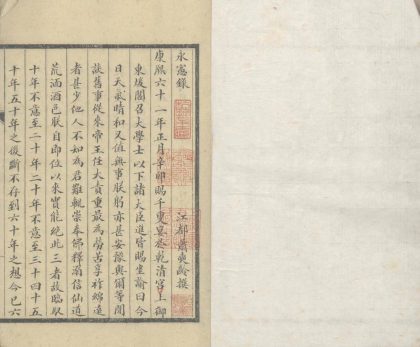 永憲錄
江都蕭奭齡撰
康熙六十一年正月辛卯賜千叟宴於乾清宮上御
東煖閣召大學士以下諸大臣進皆賜坐諭曰今
日天氣晴和又值無事朕躬亦甚安豫與爾等閒
談舊事從來帝王任大責重最為勞苦享祚綿遠
者甚少他人不知為君難輒崇奉佛釋溺信仙道
荒湎酒色朕自即位以來實能絶此三者故臨馭
十年不意至二十年二十年不意至三十四十五
十年五十年之後斷不存到六十年之想今已六